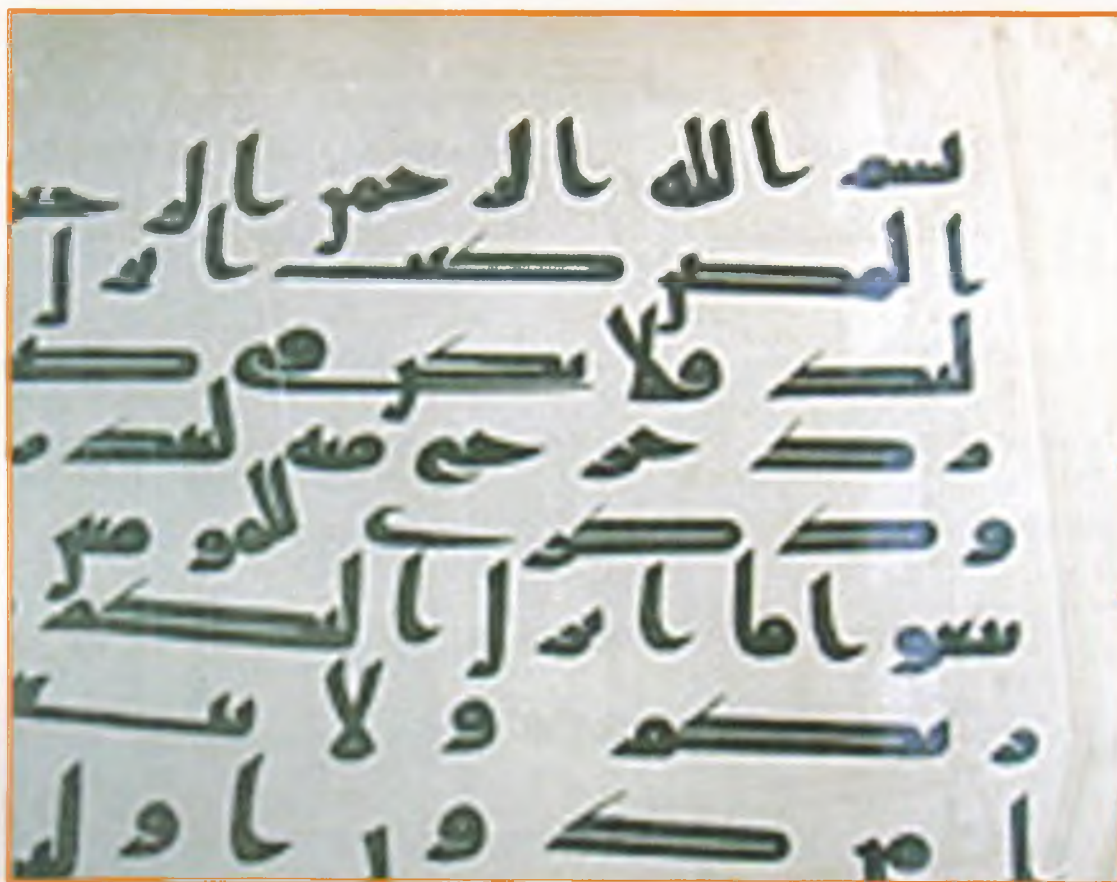 بسم الله الرحمن الرحيـ
المص كتب انزل ا
ليك فلا يكن في صـ
ر ك حرج منه لتنذ ر
و ذ كرى للمو منين
تبعوا ما انزل اليكم
ر بكم و لا تتبـ
ا من د و نه ا و ليـ